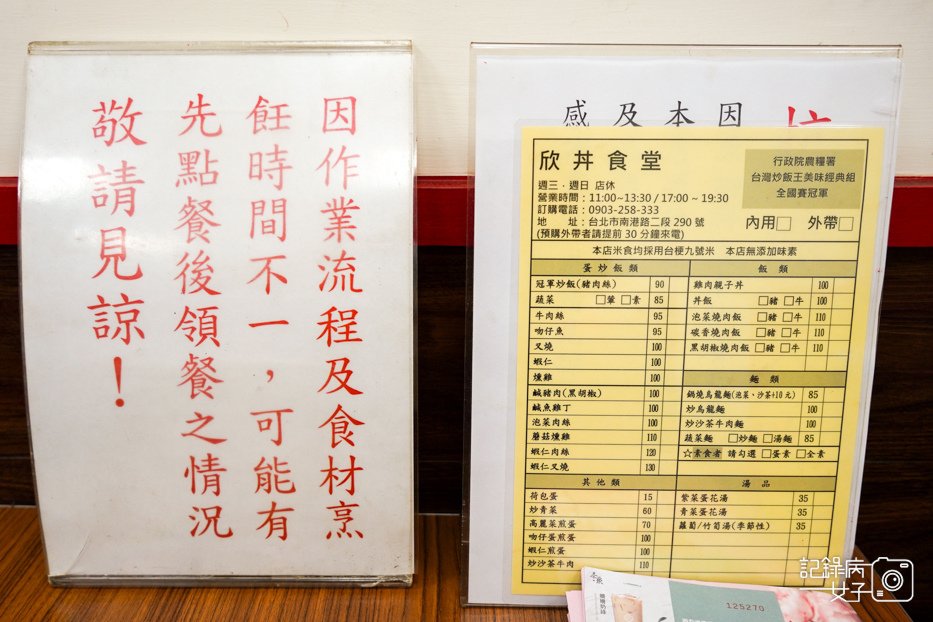 因作業流程及食材烹
飪時間不一，可能有
先點餐後領餐之情況
敬請見諒！
因
本
及
感
欣丼食堂
週三．週日 店休
營業時間：11:00~13:30 / 17:00 ~ 19:30
訂購電話：0903-258-333
地 址：台北市南港路二段 290 號
(預購外帶者請提前 30 分鐘來電)
行政院農糧署
台灣炒飯王美味經典組
全國賽冠軍
內用□ 外帶□
本店米食均採用台梗九號米 本店無添加味素
蛋炒飯類
冠軍炒飯(豬肉絲) 90
蔬菜 □葷 □素 85
牛肉絲 95
吻仔魚 95
叉燒 100
蝦仁 100
燻雞 100
鹹豬肉(黑胡椒) 100
鹹魚雞丁 100
泡菜肉絲 100
蘑菇燻雞 110
蝦仁肉絲 120
蝦仁叉燒 130
其他類
荷包蛋 15
炒青菜 60
高麗菜煎蛋 70
吻仔蛋煎蛋 100
蝦仁煎蛋 100
炒沙茶牛肉 110
飯類
雞肉親子丼 100
丼飯 □豬 □牛 100
泡菜燒肉飯 □豬 □牛 110
碳香燒肉飯 □豬 □牛 110
黑胡椒燒肉飯 □豬 □牛 110
麵類
鍋燒烏龍麵(泡菜、沙茶+10元) 85
炒烏龍麵 100
炒沙茶牛肉麵 100
蔬菜麵 □炒麵 □湯麵 85
☆素食者 請勾選 □蛋素 □全素
湯品
紫菜蛋花湯 35
青菜蛋花湯 35
蘿蔔/竹筍湯(季節性) 35
125270
記錄病
女子